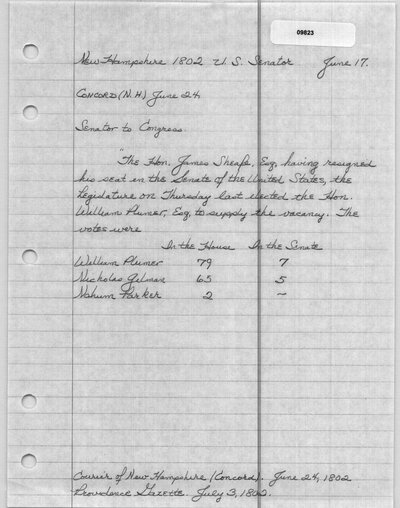 09823
New Hampshire 1802 U. S. Senator June 17.
CONCORD (N.H.) June 24.
Senator to Congress
"The Hon. James Sheafe, Esq. having resigned
his seat in the Senate of the United States, the
Legislature on Thursday last elected the Hon.
William Plumer, Esq. to supply the vacancy. The
votes were
In the House In the Senate
William Plumer 79 7
Nicholas Gilman 65 5
Nahum Parker 2 ~
Courier of New Hampshire (Concord). June 24, 1802
Providence Gazette. July 3, 1802.